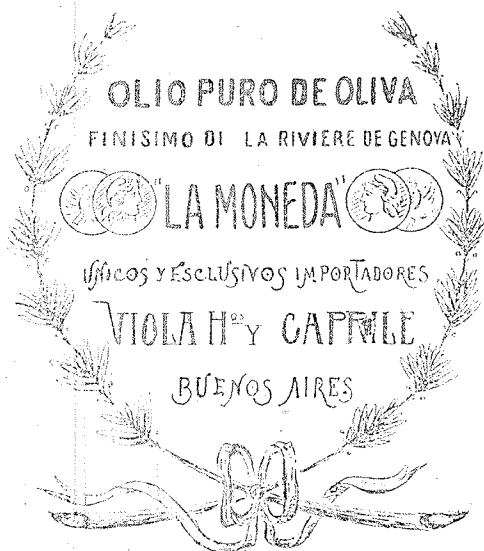 OLIO PURO DE OLIVA
FINISIMO DI LA RIVIERE DE GENOVA
"LA MONEDA"
UNICOS Y ESCLUSIVOS IMPORTADORES
VIOLA Hos Y CAPRILE
BUENOS AIRES